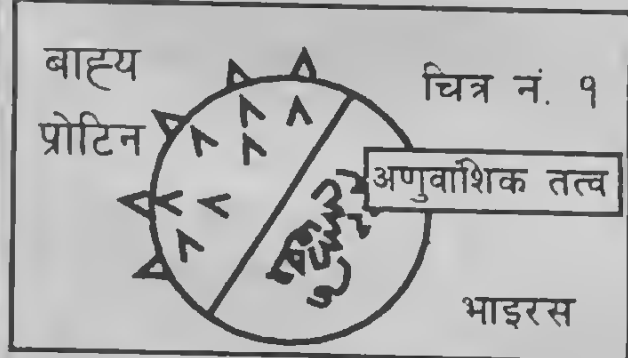 बाह्य
प्रोटिन
चित्र नं. १
अणुवांशिक तत्व
भाइरस